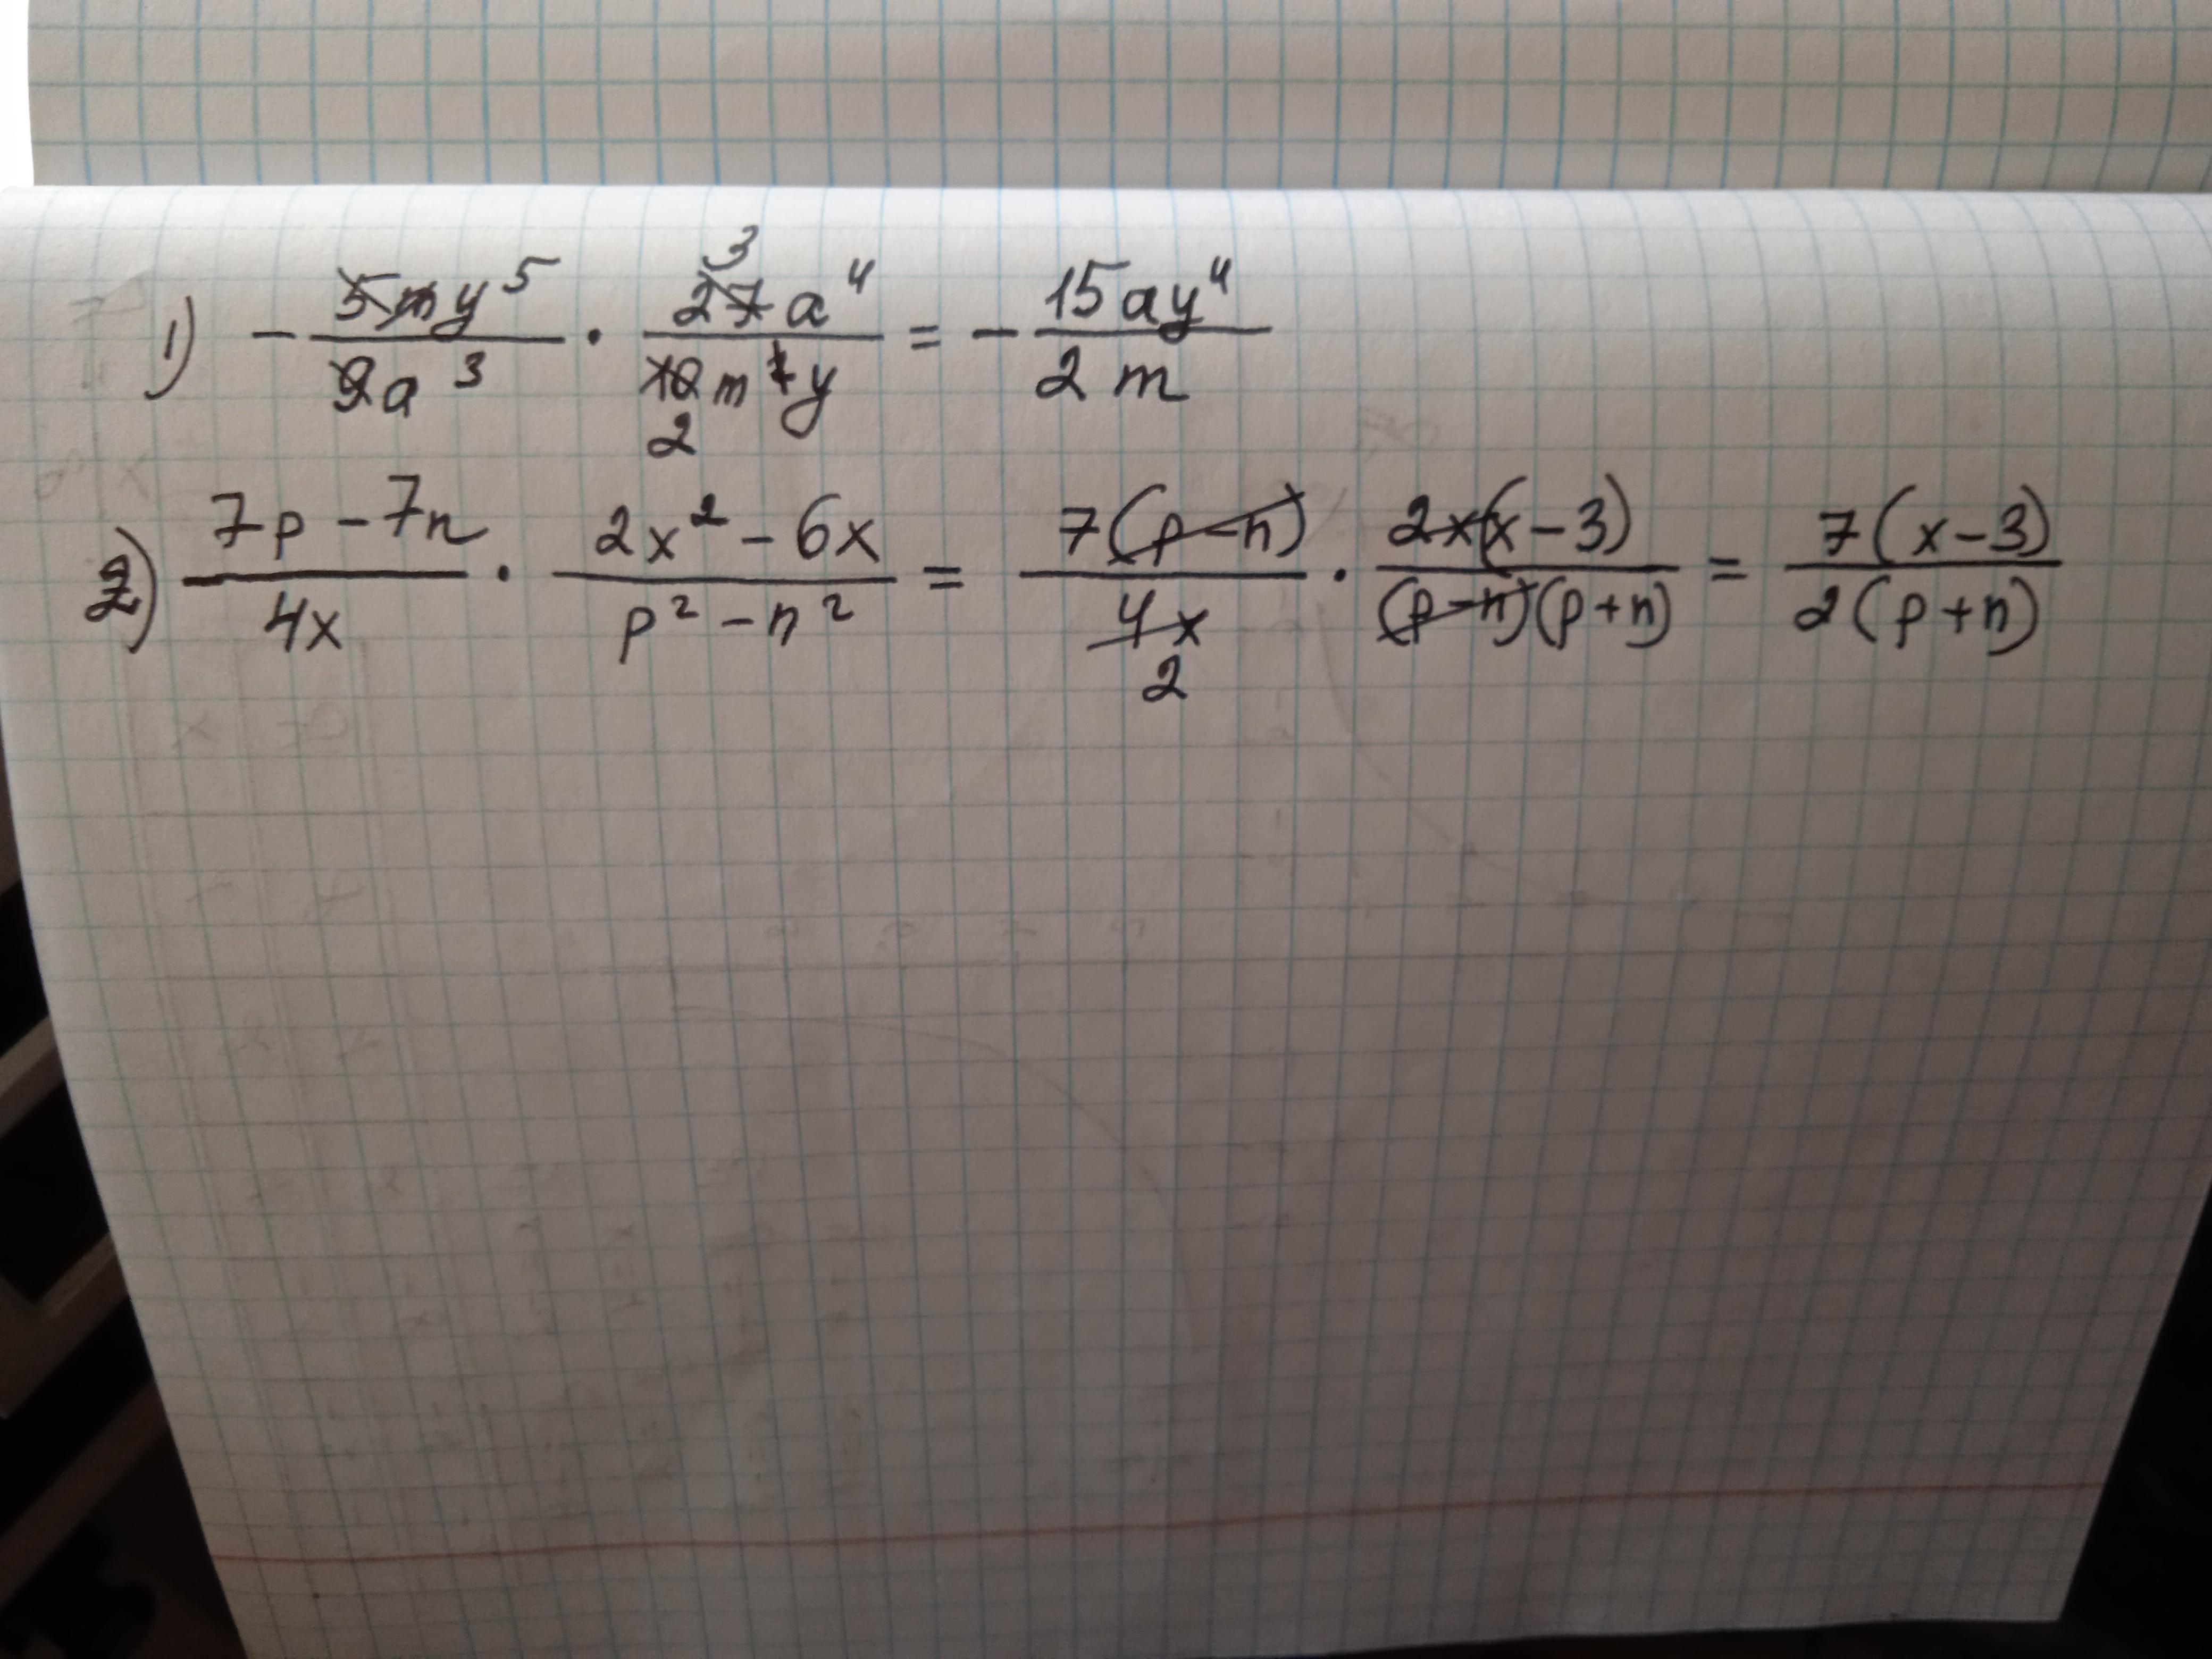 1) - 5my⁵/9a³ · 27a⁴/10m²y = - 15ay⁴/2m
3
2
2) 7p-7n/4x · 2x²-6x/p²-n² = 7(p-n)/4x · 2x(x-3)/(p-n)(p+n) = 7(x-3)/2(p+n)
2